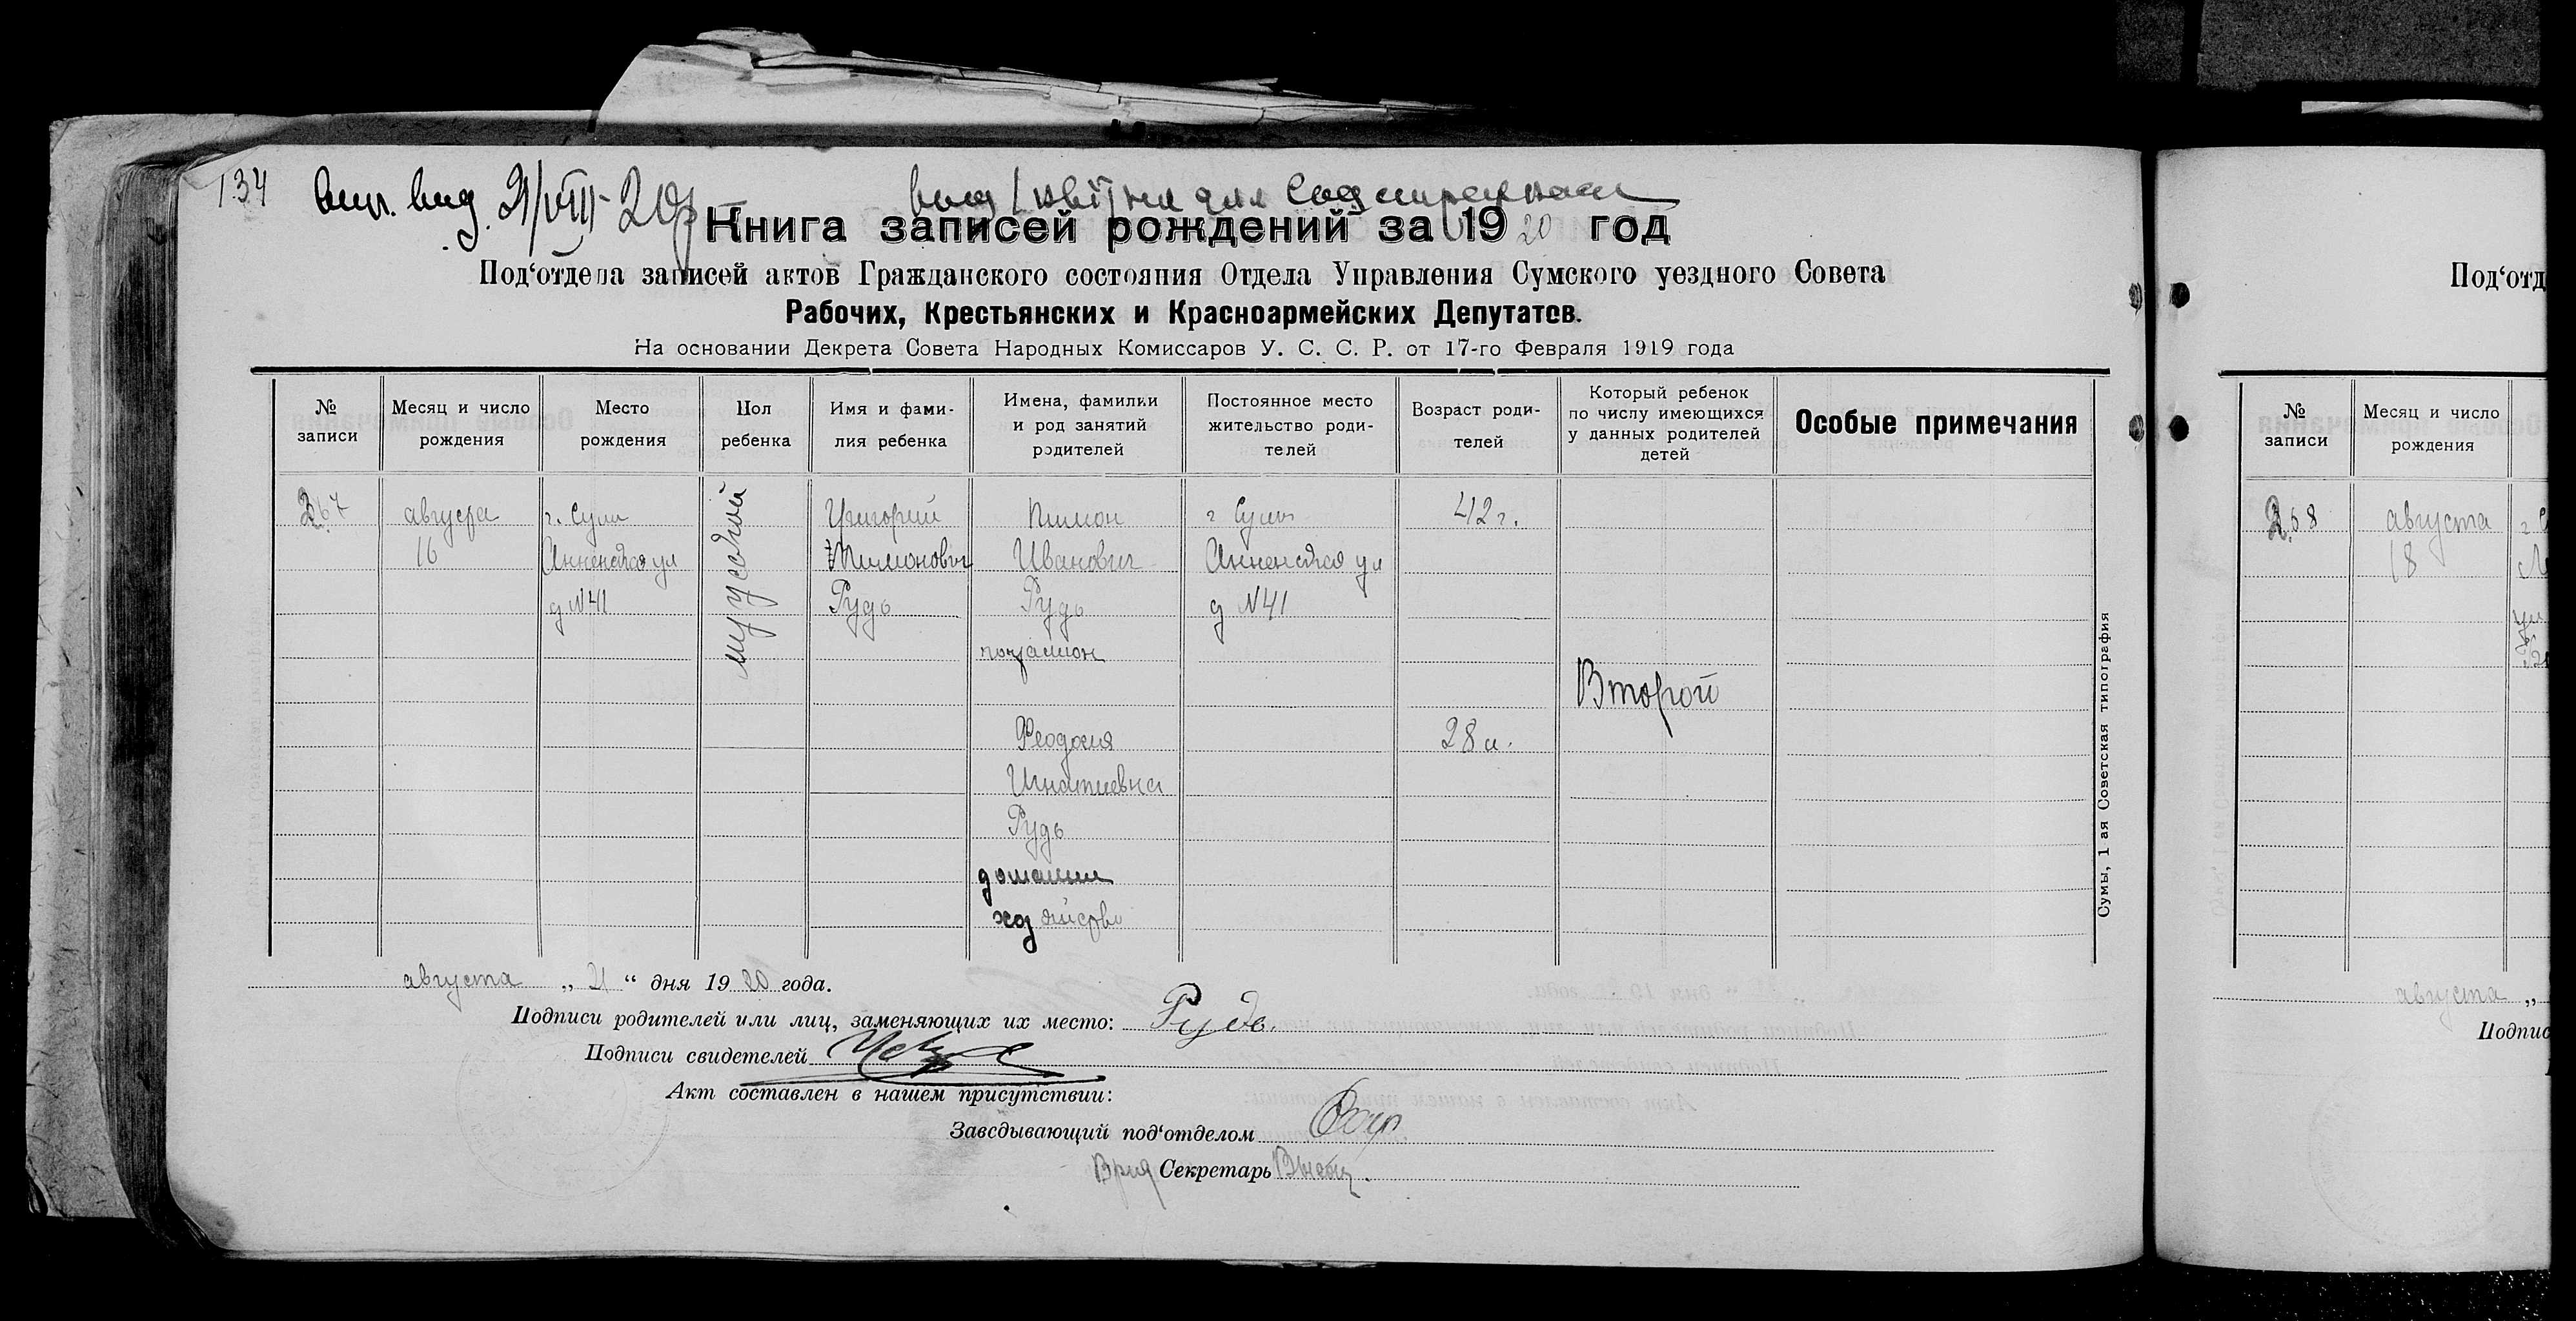 134
выд. 21/VIII-20 г
Книга записей рождений за 1920 год
Под‘отдела записей актов Гражданского состояния Отдела Управления Сумского уездного Совета
Рабочих, Крестьянских и Красноармейских Депутатов.
На основании Декрета Совета Народных Комиссаров У. С. С. Р. от 17-го Февраля 1919 года
№ записи
Месяц и число рождения
Место рождения
Пол ребенка
Имя и фамилия ребенка
Имена, фамилии и род занятий родителей
Постоянное место жительство родителей
Возраст родителей
Который ребенок по числу имеющихся у данных родителей детей
Особые примечания
267 августа г. Сумы мужской Григорий Пимон г Сумы 42 г.
16 Анненская ул Пимонович Иванович Анненская ул
д N41 Рудь Рудь д N41
почталион
Второй
Феодосия 28 л.
Игнатиевна
Рудь
домашнее
хозяйство
августа „ 21 “ дня 1920 года.
Подписи родителей или лиц, заменяющих их место: Рудь.
Подписи свидетелей
Акт составлен в нашем присутствии:
Заведывающий под‘отделом
Врид Секретарь
Сумы, 1 ая Советская типография
Под‘отд
№ записи
Месяц и число рождения
268 августа
18
августа „
Подпис